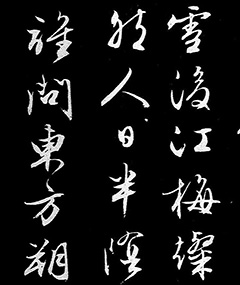 雪後江梅燦
然人日半陰
誰問東方朔